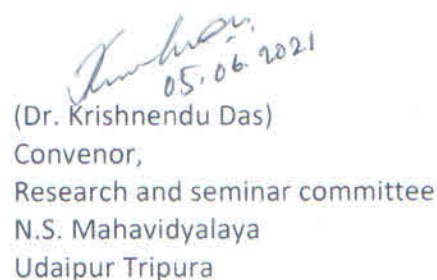 05.06.2021
(Dr. Krishnendu Das)
Convenor,
Research and seminar committee
N.S. Mahavidyalaya
Udaipur Tripura